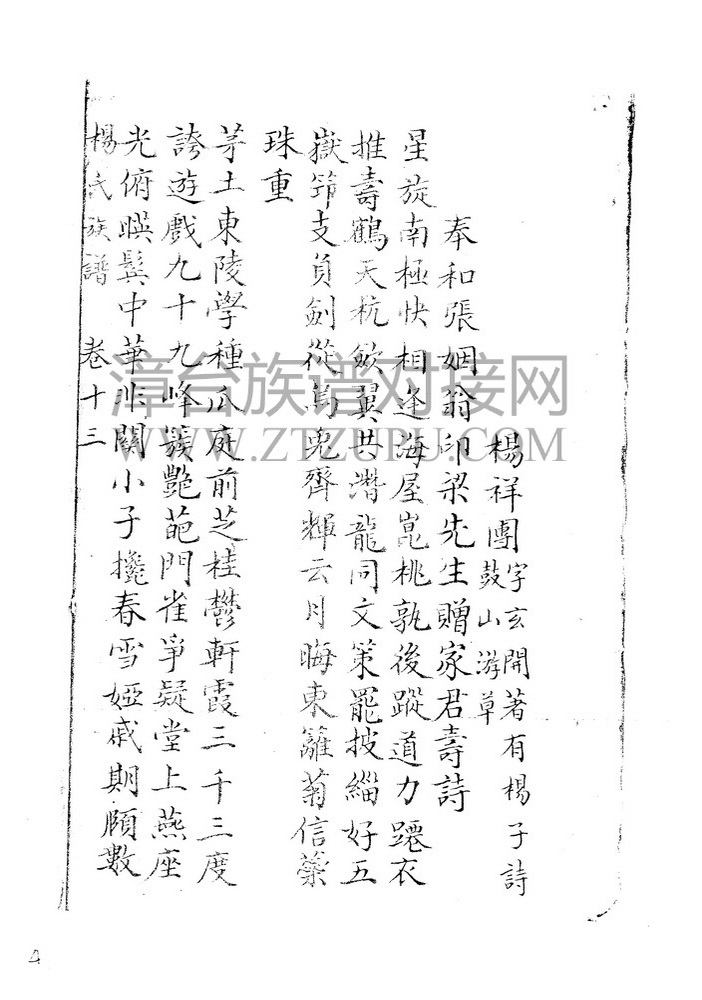 楊祥團字玄開著有楊子詩
鼓山游草
奉和張姻翁印梁先生贈家君壽詩
星旋南極快相逢海屋崑桃孰後蹤道力躚衣
推壽鶴天杭斂翼共潛龍同文策罷披緇好五
嶽筇支負劍從烏兔齊輝云月晦東籬菊信藥
珠重
茅土東陵學種瓜庭前芝桂鬱軒霞三千三度
誇遊戲九十九峰簇艷葩門雀爭疑堂上燕座
光俯暎鬂中華非關小子攙春雪婭戚期頤數
楊氏族譜 卷十三
漳台族谱对接网
WWW.ZTZUPU.COM
4